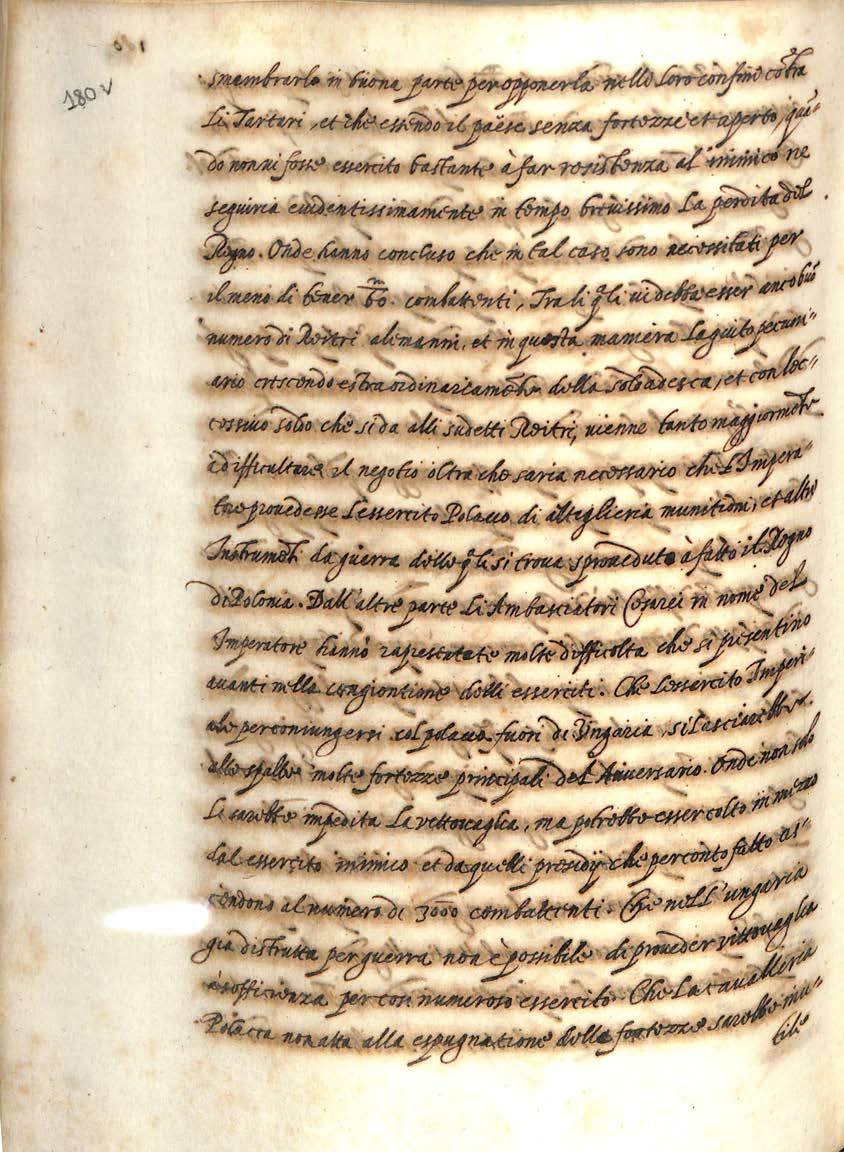 180 v
smambrarlo in buona parte per opponerla nelli loro confini cõtra
Li Tartari, et che essendo il paese senza fortezze et aperto, quã=
do non vi fosse essercito bastante à far resistenza al inimico ne
seguiria evidentissimamente in tempo brevissimo La perdita del
Regno. Onde hanno concluso che in tal caso sono necessitati per
il meno di tener 60 m combattenti, Tra li q̃li vi debba esser anco buõ
numero di Reitri alemanni, et in questa maniera La guito pecuni=
ario crescendo estraordinariamẽte della soldadesca, et con l'ec=
cessivo soldo che si da alli sudetti Reitri, vienne tanto maggiormẽte
à difficultare il negotio oltra che saria necessario che L'Impera=
tore provedesse L'essercito Polacco di altiglieria munitioni, et altri
Instrumẽti da guerra delle q̃li si trova sproveduto à fatto il Regno
di Polonia. Dall'altre parte Li Ambasciatori Cesarei in nome del
Imperatore hanno molte difficolta che si presentino
avanti nella congiontione delli esserciti. Che L'essercito Imperi=
ale per coniungersi col polacco fuori di Ungaria si lasciarebbe
alle spalle molte fortezze principali del Aiversario. Onde non solo
Li sarebbe impedita La vettovaglia, ma potrebbe esser colto in mezzo
dal essercito inimico et da quelli presidij che per conto fatto as=
cendono al numero di 3000 combattenti. Che nell'ungaria
gia distrutta per guerra non è possibile di proveder vittovaglia
à sofficienza per cosi numeroso essercito. Che La cavalleria
Polacca non atta alla espugnatione delle fortezze sarebbe inu=
tile